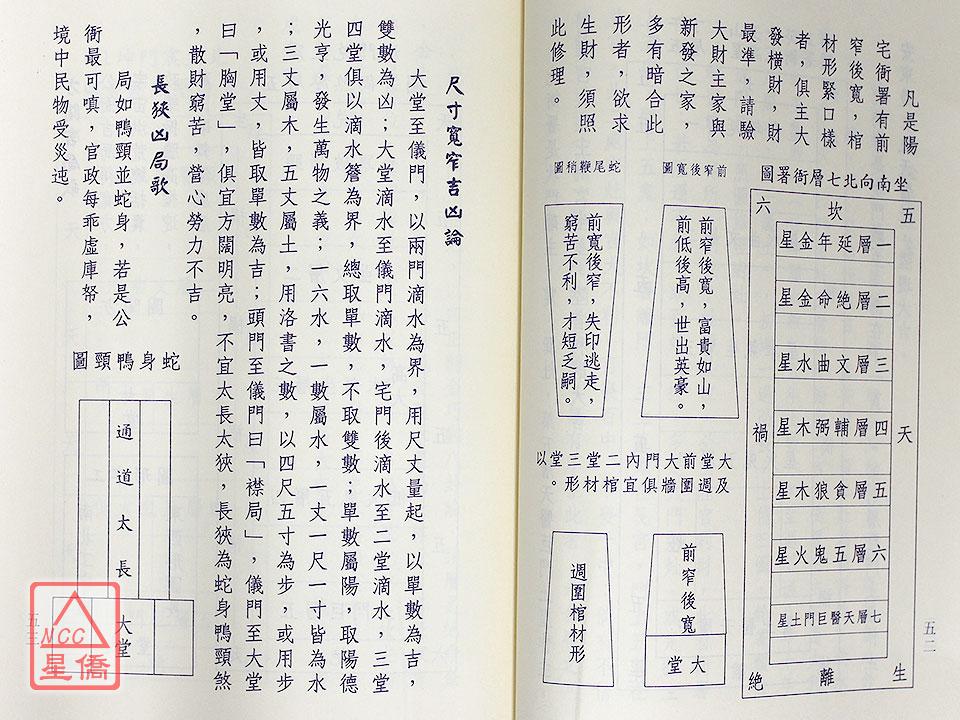 凡是陽
宅衙署有前
窄後寬，棺
材形緊口樣
者，俱主大
發橫財，財
最準，請驗
大財主家與
新發之家，
多有暗合此
形者，欲求
生財，須照
此修理。
坐南向北七層衙署圖
五
坎
六
一層延年金星
二層絶命金星
三層文曲水星
四層輔弼木星
五層貪狼木星
六層五鬼火星
七層天醫巨門土星
天
禍
生
離
絶
前窄後寬圖
前窄後寬，富貴如山，
前低後高，世出英豪。
蛇尾鞭稍圖
前寬後窄，失印逃走，
窮苦不利，才短乏嗣。
大堂前大門內二堂三堂以
及週圍牆俱宜棺材形。
前窄後寬
大堂
週圍棺材形
五二
尺寸寬窄吉凶論
大堂至儀門，以兩門滴水為界，用尺丈量起，以單數為吉，
雙數為凶；大堂滴水至儀門滴水，宅門後滴水至二堂滴水，三堂
四堂俱以滴水簷為界，總取單數，不取雙數；單數屬陽，取陽德
光亨，發生萬物之義；一六水，一數屬水，一丈一尺一寸皆為水
；三丈屬木，五丈屬土，用洛書之數，以四尺五寸為步，或用步
，或用丈，皆取單數為吉；頭門至儀門曰「襟局」，儀門至大堂
曰「胸堂」，俱宜方闊明亮，不宜太長太狹，長狹為蛇身鴨頸煞
，散財窮苦，營心勞力不吉。
長狹凶局歌
局如鴨頸並蛇身，若是公
衙最可嗔，官政每乖虛庫帑，
境中民物受災迍。
蛇身鴨頸圖
通道太長
大堂
五三
NCC
星僑